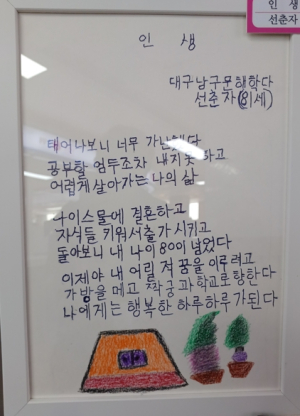 인 생
선춘자
인 생
대구남구문해학다
선춘자(81세)
태어나보니 너무 가난했다
공부할 엄두조차 내지못 하고
어렵게살아가는 나의 삶
나이스물에 결혼하고
자식들 키워서출가 시키고
돌아보니 내 나이 80이 넘었다
이제야 내 어릴 적 꿈을 이루려고
가방을 메고 학교로향한다
나에게는 행복한 하루하루가된다